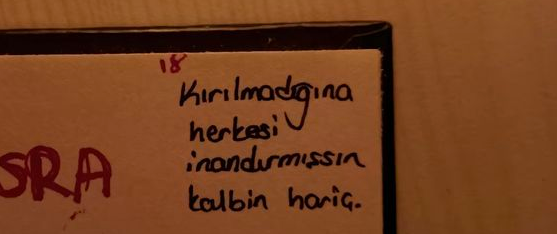 18
Kırılmadığına
herkesi
inandırmışsın
SRA
kalbin hariç.